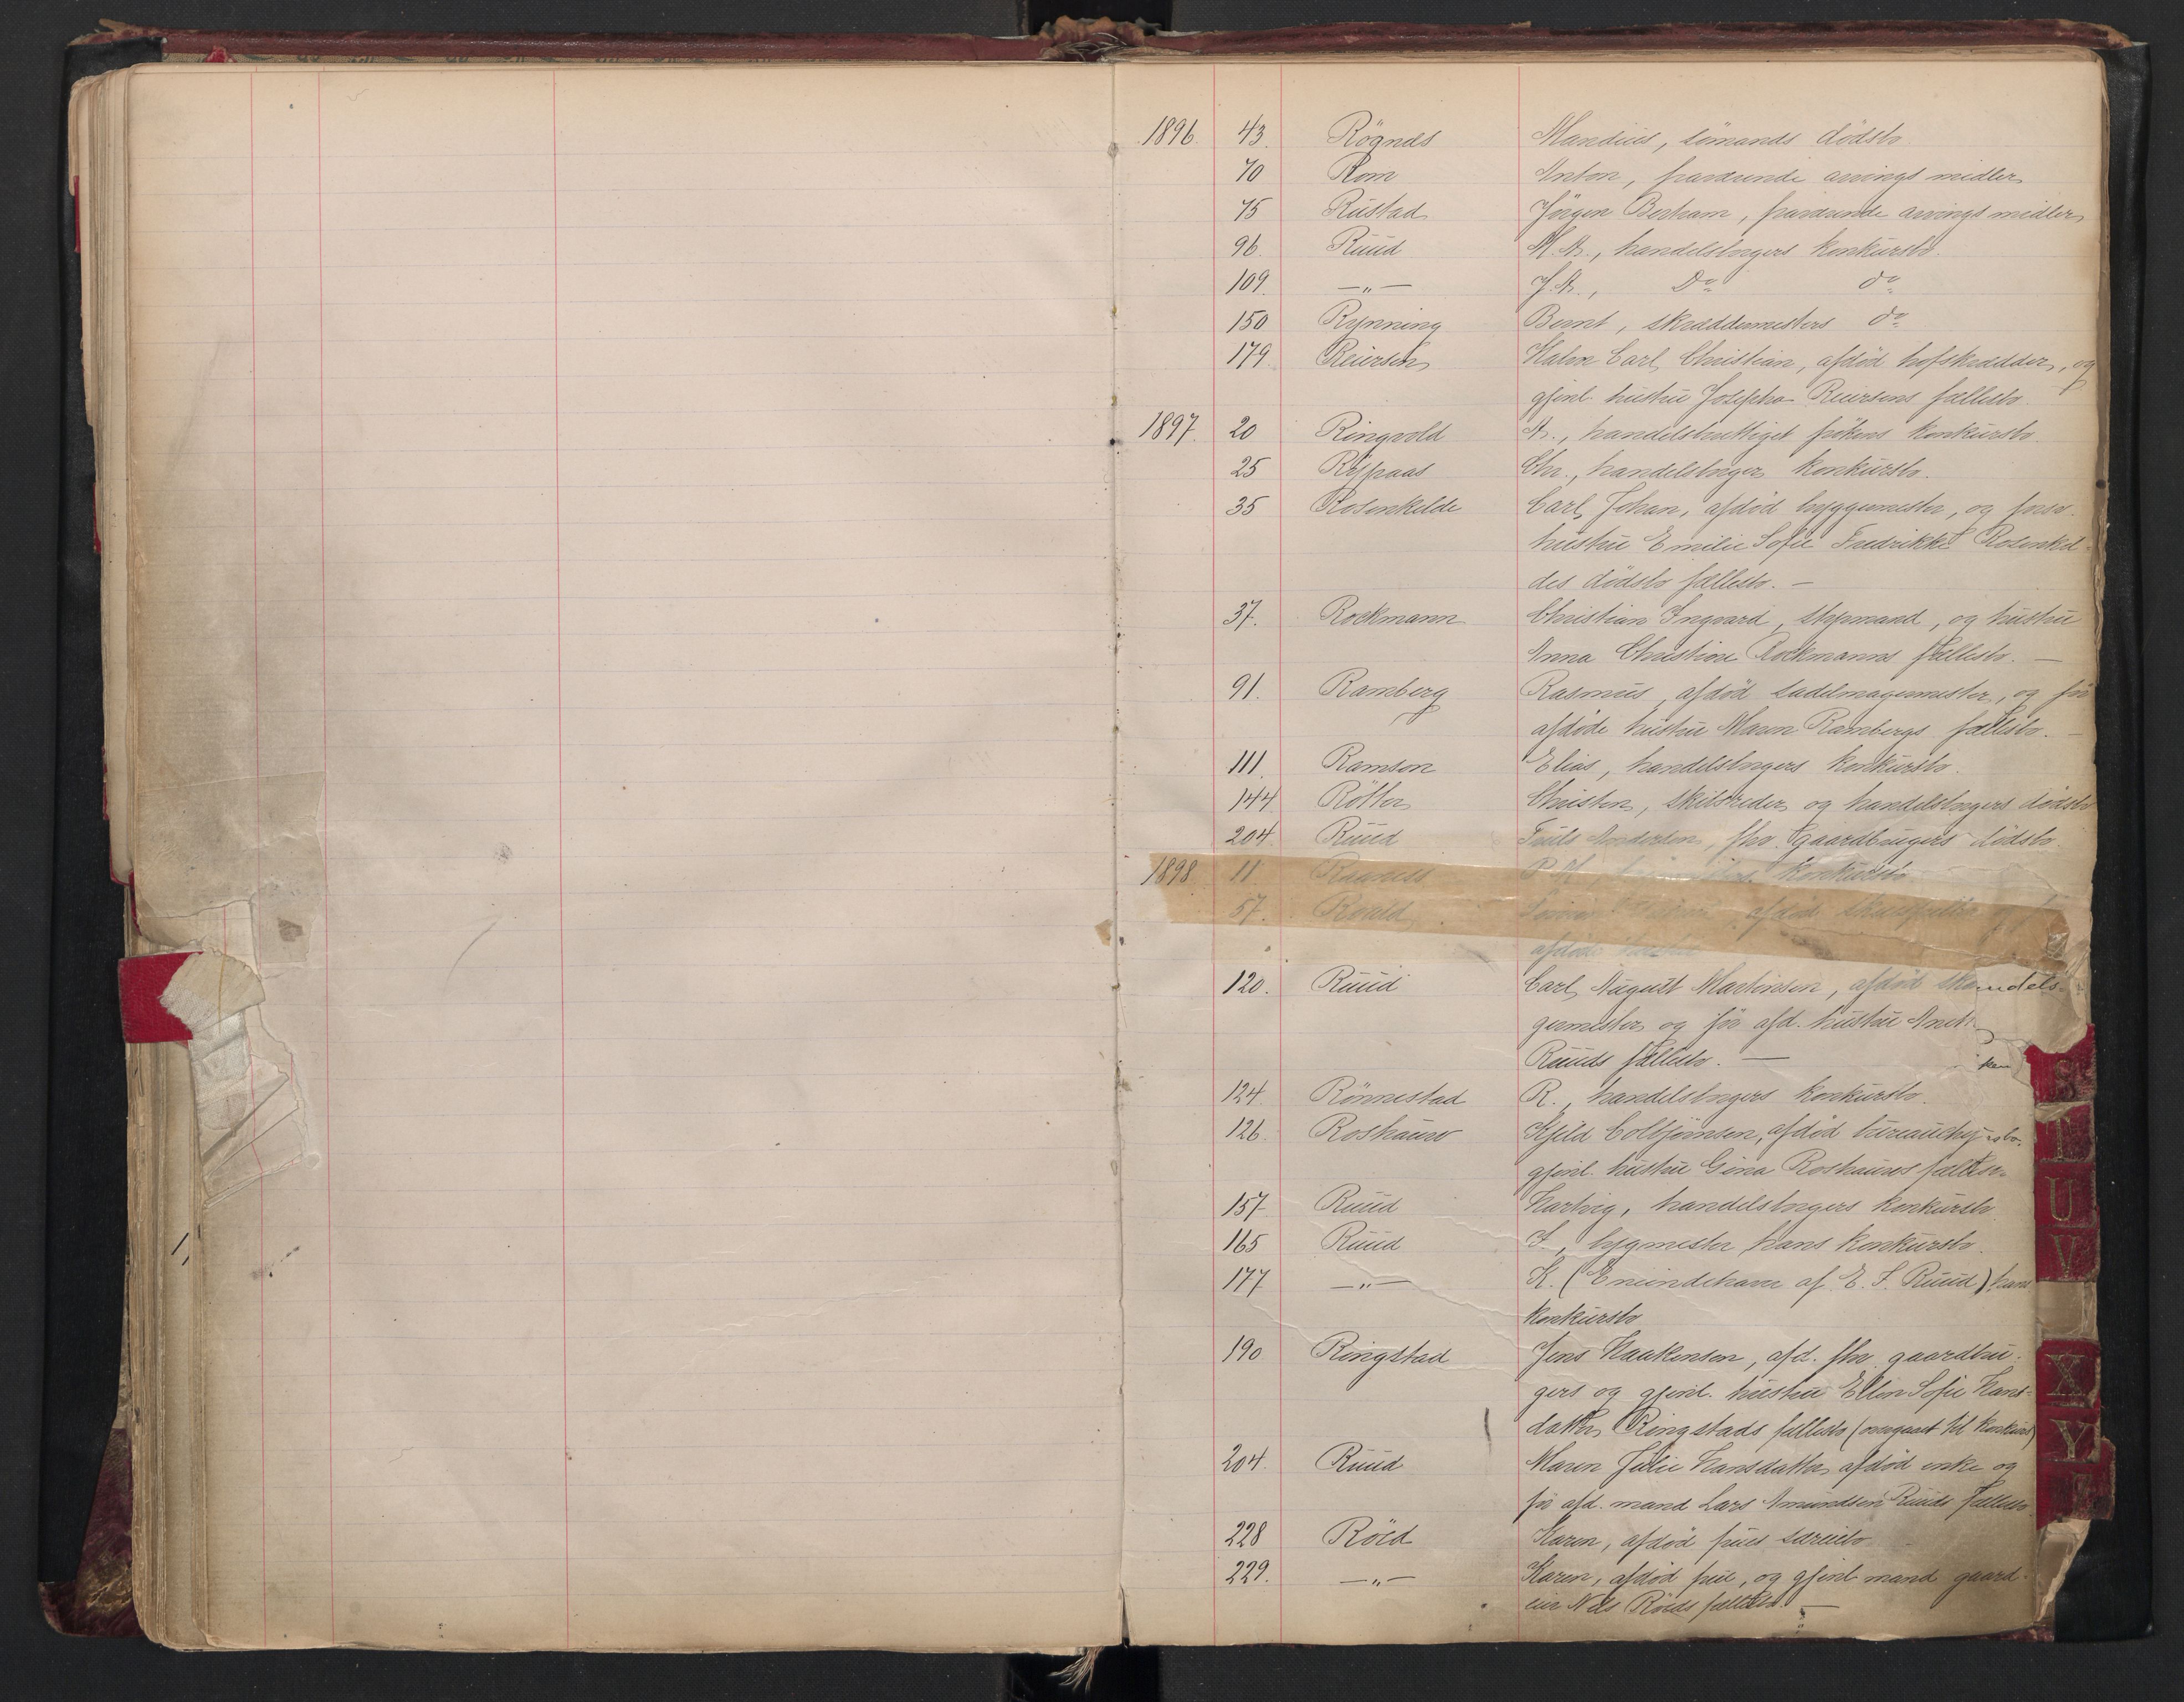 1896. 43. Rögnæs Mandius, sömands dödsbo.
70 Rom Anton, fraværende arvings midler
75 Rustad Jörgen Bertram, fraværende arvings midler
96. Ruud M. A., handelsbogers konkursbo.
109. —„— J. A., Do do
150 Rynning Bernt, skræddermesters do
179 Reiersen Halvor Carl Christian, afdöd hofskrædder, og
gjenl. hustru Josepha Reiersens fællesbo.
1897. 20 Ringvold A., handelsberettiget frökens konkursbo
25 Rypaas Chr., handelsboger konkursbo.
35 Rosenkilde Carl Johan, afdöd byggemester, og
hustru Emilie Sofie Fredrikke Rosenkil-
des dödsbo fællesbo. —
37. Rockmann Christian Ingvard, styrmand, og hustru
Anna Christine Rockmanns fællesbo. —
91. Ramberg Rasmus, afdöd sadelmagermester, og för
afdöde hustru Maren Rambergs fællesbo. —
111. Ramson Elias, handelsbogers konkursbo.
144 Rötter Christen, skibsreder og handelsbogers dödsbo
204. Ruud Truls Andersen, fhv. gaardbrugers dödsbo.
1898 11 Raaness P. konkursbo
57. Roald afdöd
afdöde hustru
120. Ruud Carl August Martinsen, afdöd ndels-
germester og för afd. hustru
Ruuds fællesbo. — ken
124. Rönnestad R., handelsbogers konkursbo.
126. Roshauw Kjeld Colbjörnsen, afdöd sbo.
gjenl. hustru Gina Roshauws fællesbo
157. Ruud Hartvig, handelsbogers konkursbo
165 Ruud I., bygmester hans konkursbo.
177 —„— K. (Eneindehaver af E. I. Ruud) hans
konkursbo
190 Ringstad Jens Haakensen, afd. fhv. gaardbru-
gers og gjenl. hustru Ellen Sofie Hans-
datter Ringstads fællesbo (overgaaet til konkurs)
204. Ruud Maren Julie Hansdatter afdöd enke og
för afd. mand Lars Amundsen Ruuds fællesbo
228 Röed Karen, afdöd frues særeiebo
229. —„— Karen, afdöd frue, og gjenl mand gaard-
eier Nils Röeds fællesbo. —
S
T
U
V
X
Y